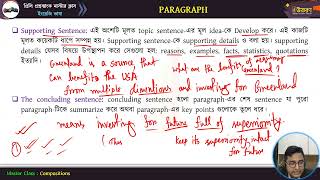 PARAGRAPH
ইংরেজি ভাষা
Supporting Sentence: এই অংশটি মূলত topic sentence-এর মূল idea-কে Develop করে। এই কাজটি
মূলত কয়েকটি ধাপে সম্পন্ন হয়। Supporting sentence-কে supporting details ও বলা হয়। supporting
details যেসব বিষয়ে উপস্থাপন করে সেগুলো হল: reasons, examples, facts, statistics, quotations
ইত্যাদি।
Greenland is a source, that
can benefit the USA
what are the benefits of
Greenland?
from multiple dimentions and investing for Greenland
The concluding sentence: concluding sentence হলো paragraph-এর শেষ Sentence যা পুরো
paragraph-টিকে summarize করে অথবা paragraph-এর key points গুলোকে তুলে ধরে।
means investing for future full of supermority.
Thus
keep its supermority intact
for future
Master Class : Compositions